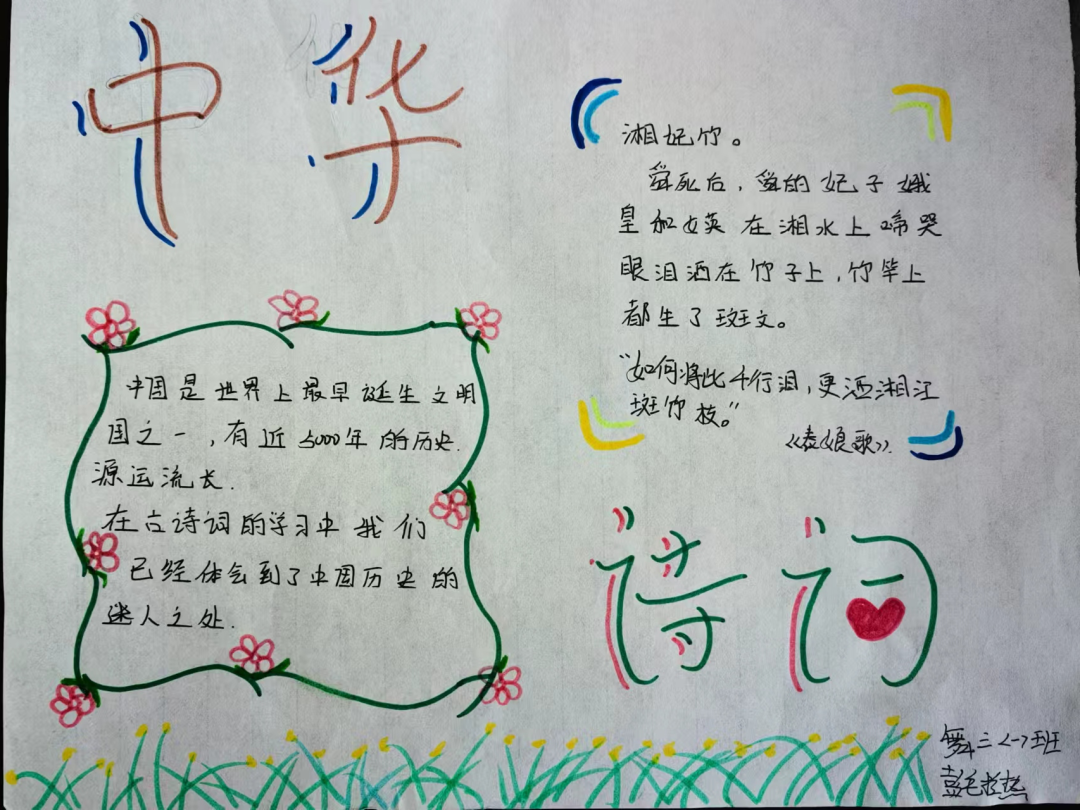 中华
湘妃竹。
舜死后，舜的妃子娥
皇和女英在湘水上啼哭
眼泪洒在竹子上，竹竿上
都生了斑文。
“如何将此千行泪，更洒湘江
斑竹枝。”
中国是世界上最早诞生文明
国之一，有近5000年的历史.
源远流长.
在古诗词的学习中我们
已经体会到了中国历史的
迷人之处.
诗词
三<一>班